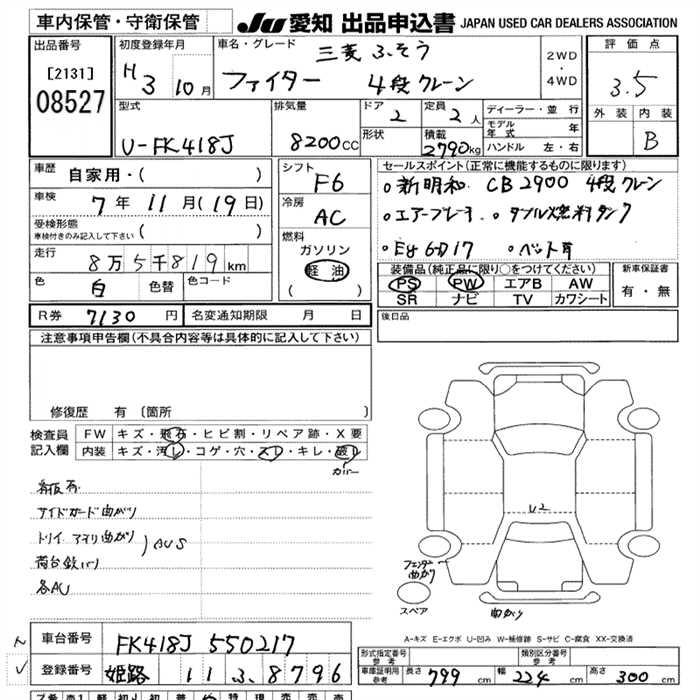 車内保管・守衛保管
JU 愛知 出品申込書 JAPAN USED CAR DEALERS ASSOCIATION
出品番号
[2131]
08527
初度登録年月
H 3 10月
車名・グレード
三菱ふそう
ファイター 4段クレーン
2WD
・
4WD
評価点
3.5
外装 内装
B
型式
U-FK418J
排気量
8200cc
ドア
2
定員
2人
形状
積載
2790kg
ディーラー・並行
モデル年式 年
ハンドル 左・右
車歴
自家用・( )
車検
7年11月(19日)
受検形態
車検付きのみ記入して下さい ( )
走行
8万5千819km
色
白
色替
色コード
シフト
F6
冷房
AC
燃料
ガソリン
軽油
( )
セールスポイント(正常に機能するものに限ります)
○新明和 CB2900 4段クレーン
○エアーブレーキ ○ダブル燃料タンク
○Eg 6D17 ○ベット有
装備品(純正品に限り○をつけてください)
PS PW エアB AW
SR ナビ TV カワシート
新車保証書
有・無
R券 7130円
名変通知期限 月 日
後日品
注意事項申告欄(不具合内容等は具体的に記入して下さい)
修復歴 有 [箇所 ]
検査員記入欄
FW キズ・飛石・ヒビ割・リペア跡・X要
内装 キズ・汚レ・コゲ・穴・スレ・キレ・破レ
カバー
看板有
サイドガード曲がり
荷台鉄バリ
各AU
AUS
U2
フェンダー曲がり
スペア
曲がり
A-キズ E-エクボ U-凹み W-補修跡 S-サビ C-腐食 XX-交換済
車台番号
FK418J 550217
登録番号
姫路 11 ふ 8796
形式指定番号
参考
類別区分番号
参考
車庫証明用
参考
長さ 799cm
幅 224cm
高さ 300cm